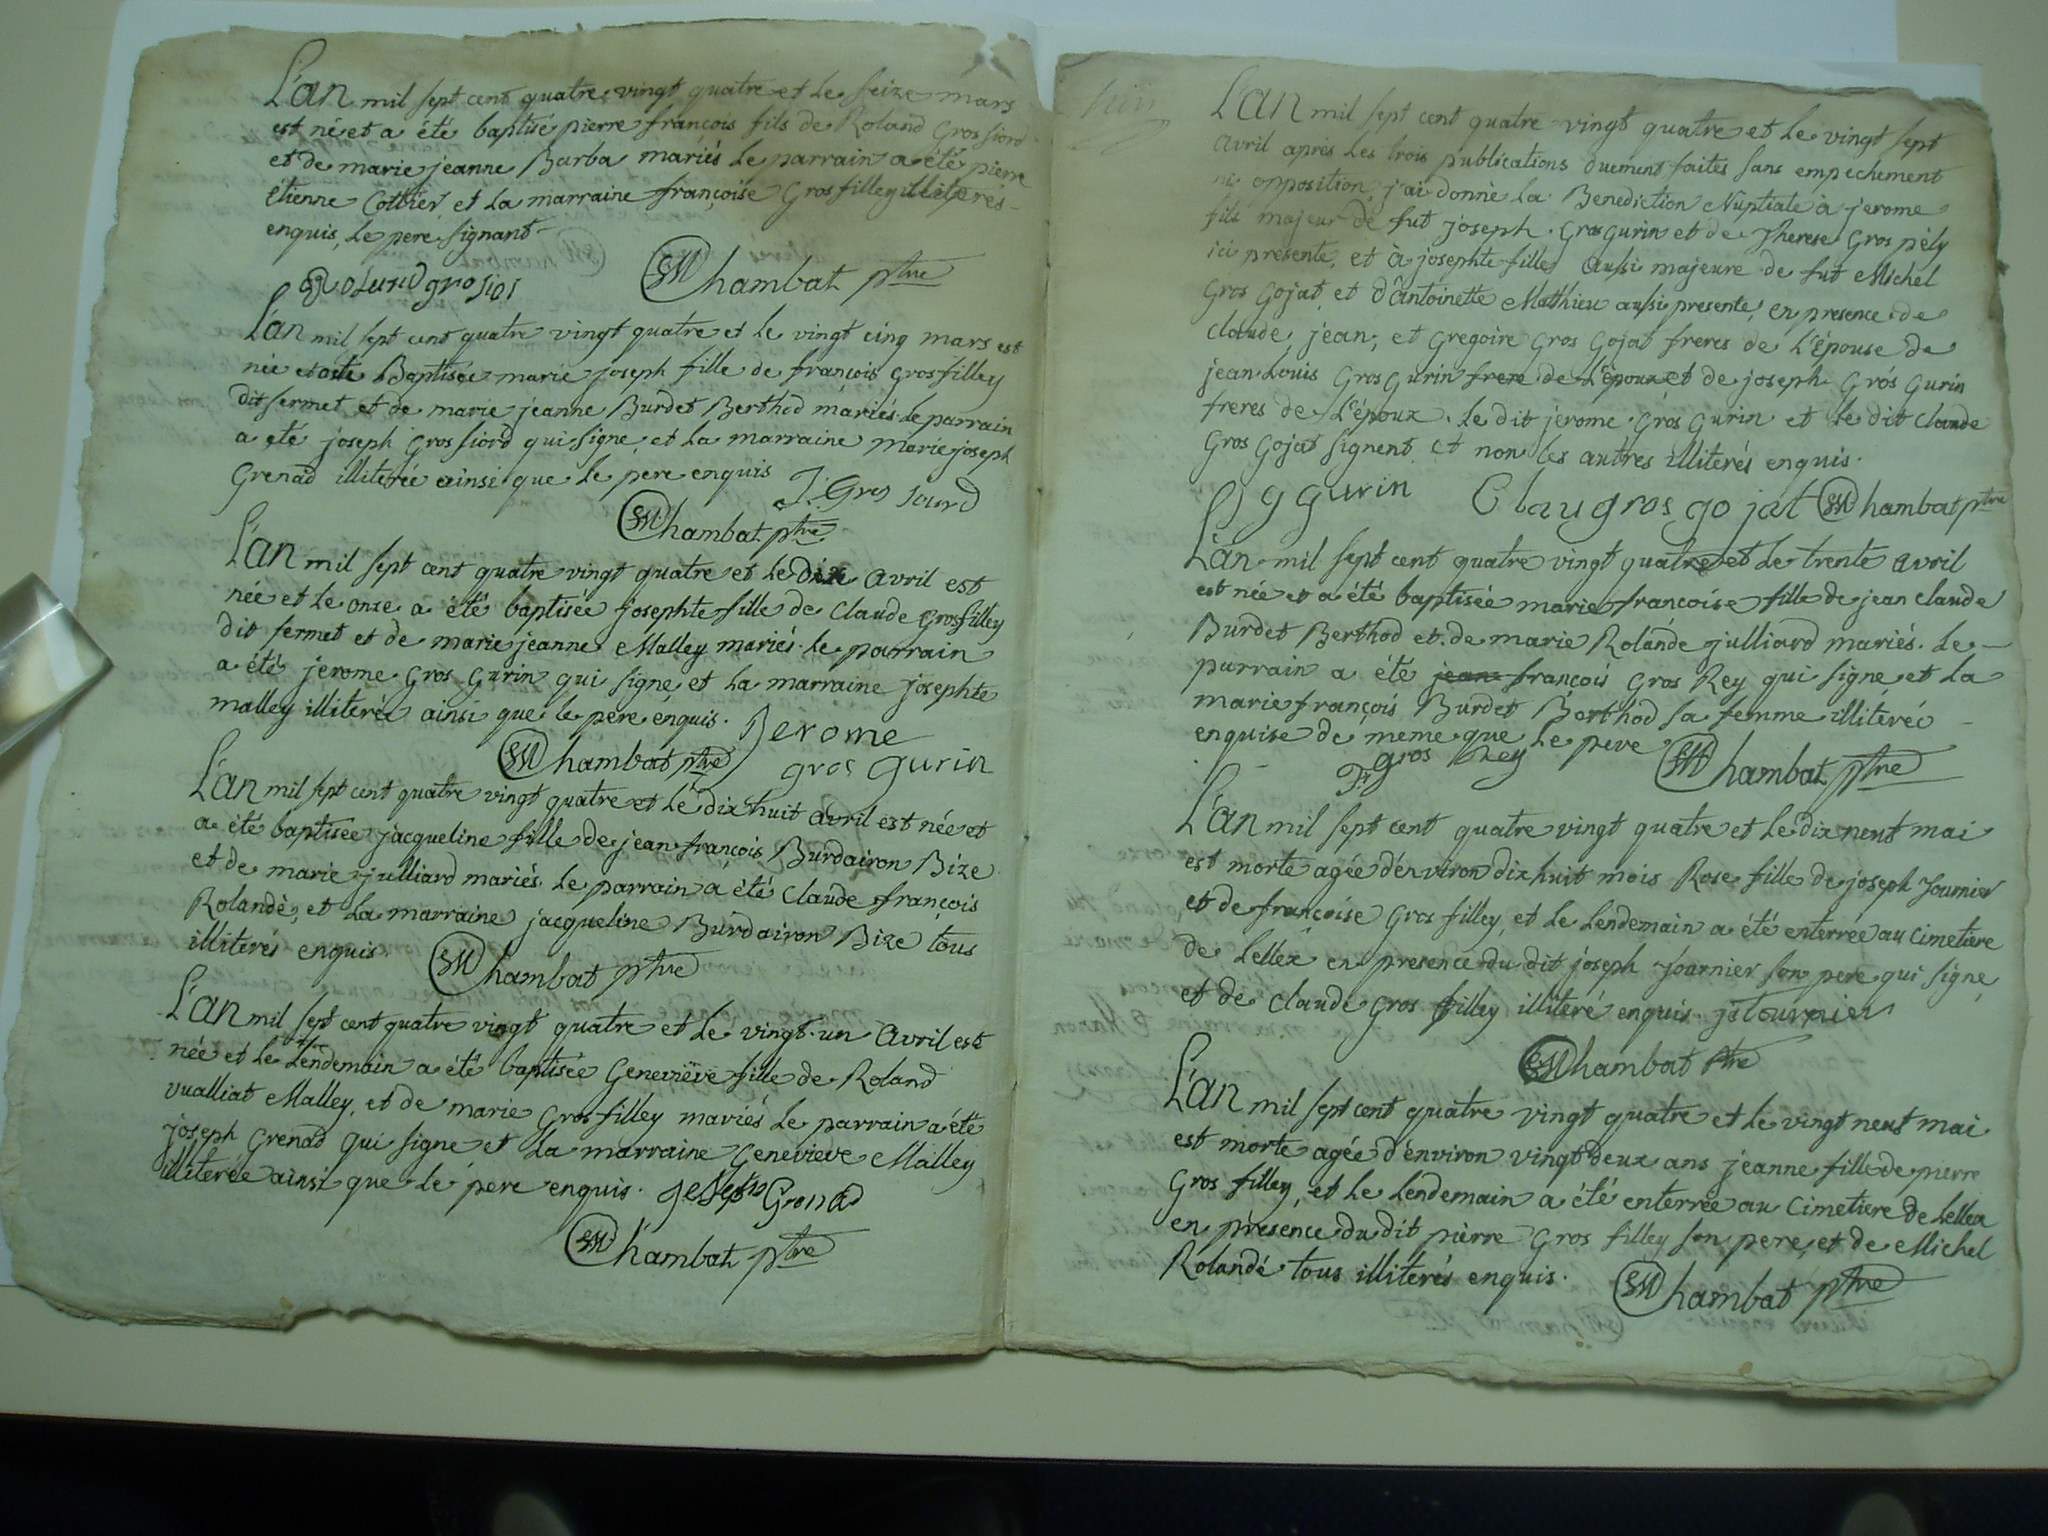 L'an mil sept cent quatre vingt quatre et le seize mars
est né et a été baptisé pierre françois fils de Roland Gros fiord
et de marie jeanne Barba mariés le parrain a été pierre
étienne Cottier et la marraine françoise Grosfilley illiterés
enquis, le pere signant
Roland grosior
SM Chambat ptre
L'an mil sept cent quatre vingt quatre et le vingt cinq mars est
née et a été Baptisée marie joseph fille de françois Grosfilley
dit fermet et de marie jeanne Burdet Berthod mariés le parrain
a été joseph Gros fiord qui signe et la marraine marie joseph
Grenad illiterée ainsi que le pere enquis J. Gros
SM Chambat ptre
L'an mil sept cent quatre vingt quatre et le dixe avril est
née et le onse a été baptisée josephte fille de Claude Grosfilley
dit fermet et de marie jeanne Malley mariés. le parrain
a été jerome Gros Gurin qui signe et la marraine josephte
malley illiterée ainsi que le pere enquis. Jerome
SM Chambat ptre gros gurin
L'an mil sept cent quatre vingt quatre et le dix huit avril est née et
a été baptisée jacqueline fille de jean françois Burdairon Bize
et de marie julliard mariés. le parrain a été Claude françois
Rolandé, et la marraine jacqueline Burdairon Bize tous
illiterés enquis. SM Chambat ptre
L'an mil sept cent quatre vingt quatre et le vingt-un avril est
née et le lendemain a été baptisée Geneviève fille de Roland
vualliat Malley, et de marie Gros filley mariés le parrain a été
joseph Grenad qui signe et la marraine Genevieve Malley
illiterée ainsi que le pere enquis. joseph Grenad
SM Chambat ptre
L'an mil sept cent quatre vingt quatre et le vingt sept
avril après les trois publications duement faites sans empechement
ni opposition, j'ai donné la Benediction Nuptiale à jerome
fils majeur de fut joseph Gros gurin et de Therese Gros pely
ici presente, et à josephte fille aussi majeure de fut Michel
Gros Gojat, et d'Antoinette Matthieu aussi presente, en presence de
Claude, jean, et Gregoire Gros Gojat freres de L'épouse de
jean Louis Gros Gurin frere de L'époux et de joseph Gros Gurin
freres de L'époux. Le dit jerome Gros Gurin et le dit Claude
Gros Gojat signent et non les autres illiterés enquis.
g gurin Clau gros go jat SM Chambat ptre
L'an mil sept cent quatre vingt quatre et le trente avril
est née et a été baptisée marie françoise fille de jean claude
Burdet Berthod et de marie Rolande julliard mariés. Le
parrain a été jean françois Gros Rey qui signe et la
marie françois Burdet Berthod sa femme illiterée
enquise de meme que le pere
F. gros Rey SM Chambat ptre
L'an mil sept cent quatre vingt quatre et le dix neuf mai
est morte agée d'environ dixhuit mois Rose fille de joseph Tournier
et de françoise Gros filley, et le lendemain a été enterrée au Cimetiere
de Lellex en presence du dit joseph Tournier son pere qui signe,
et de Claude Gros filley illiteré enquis. j Tournier
SM Chambat ptre
L'an mil sept cent quatre vingt quatre et le vingt neuf mai
est morte agée d'environ vingt deux ans jeanne fille de pierre
Gros filley, et le lendemain a été enterrée au Cimetiere de Lellex
en presence du dit pierre Gros filley son pere, et de Michel
Rolandé tous illiterés enquis. SM Chambat ptre